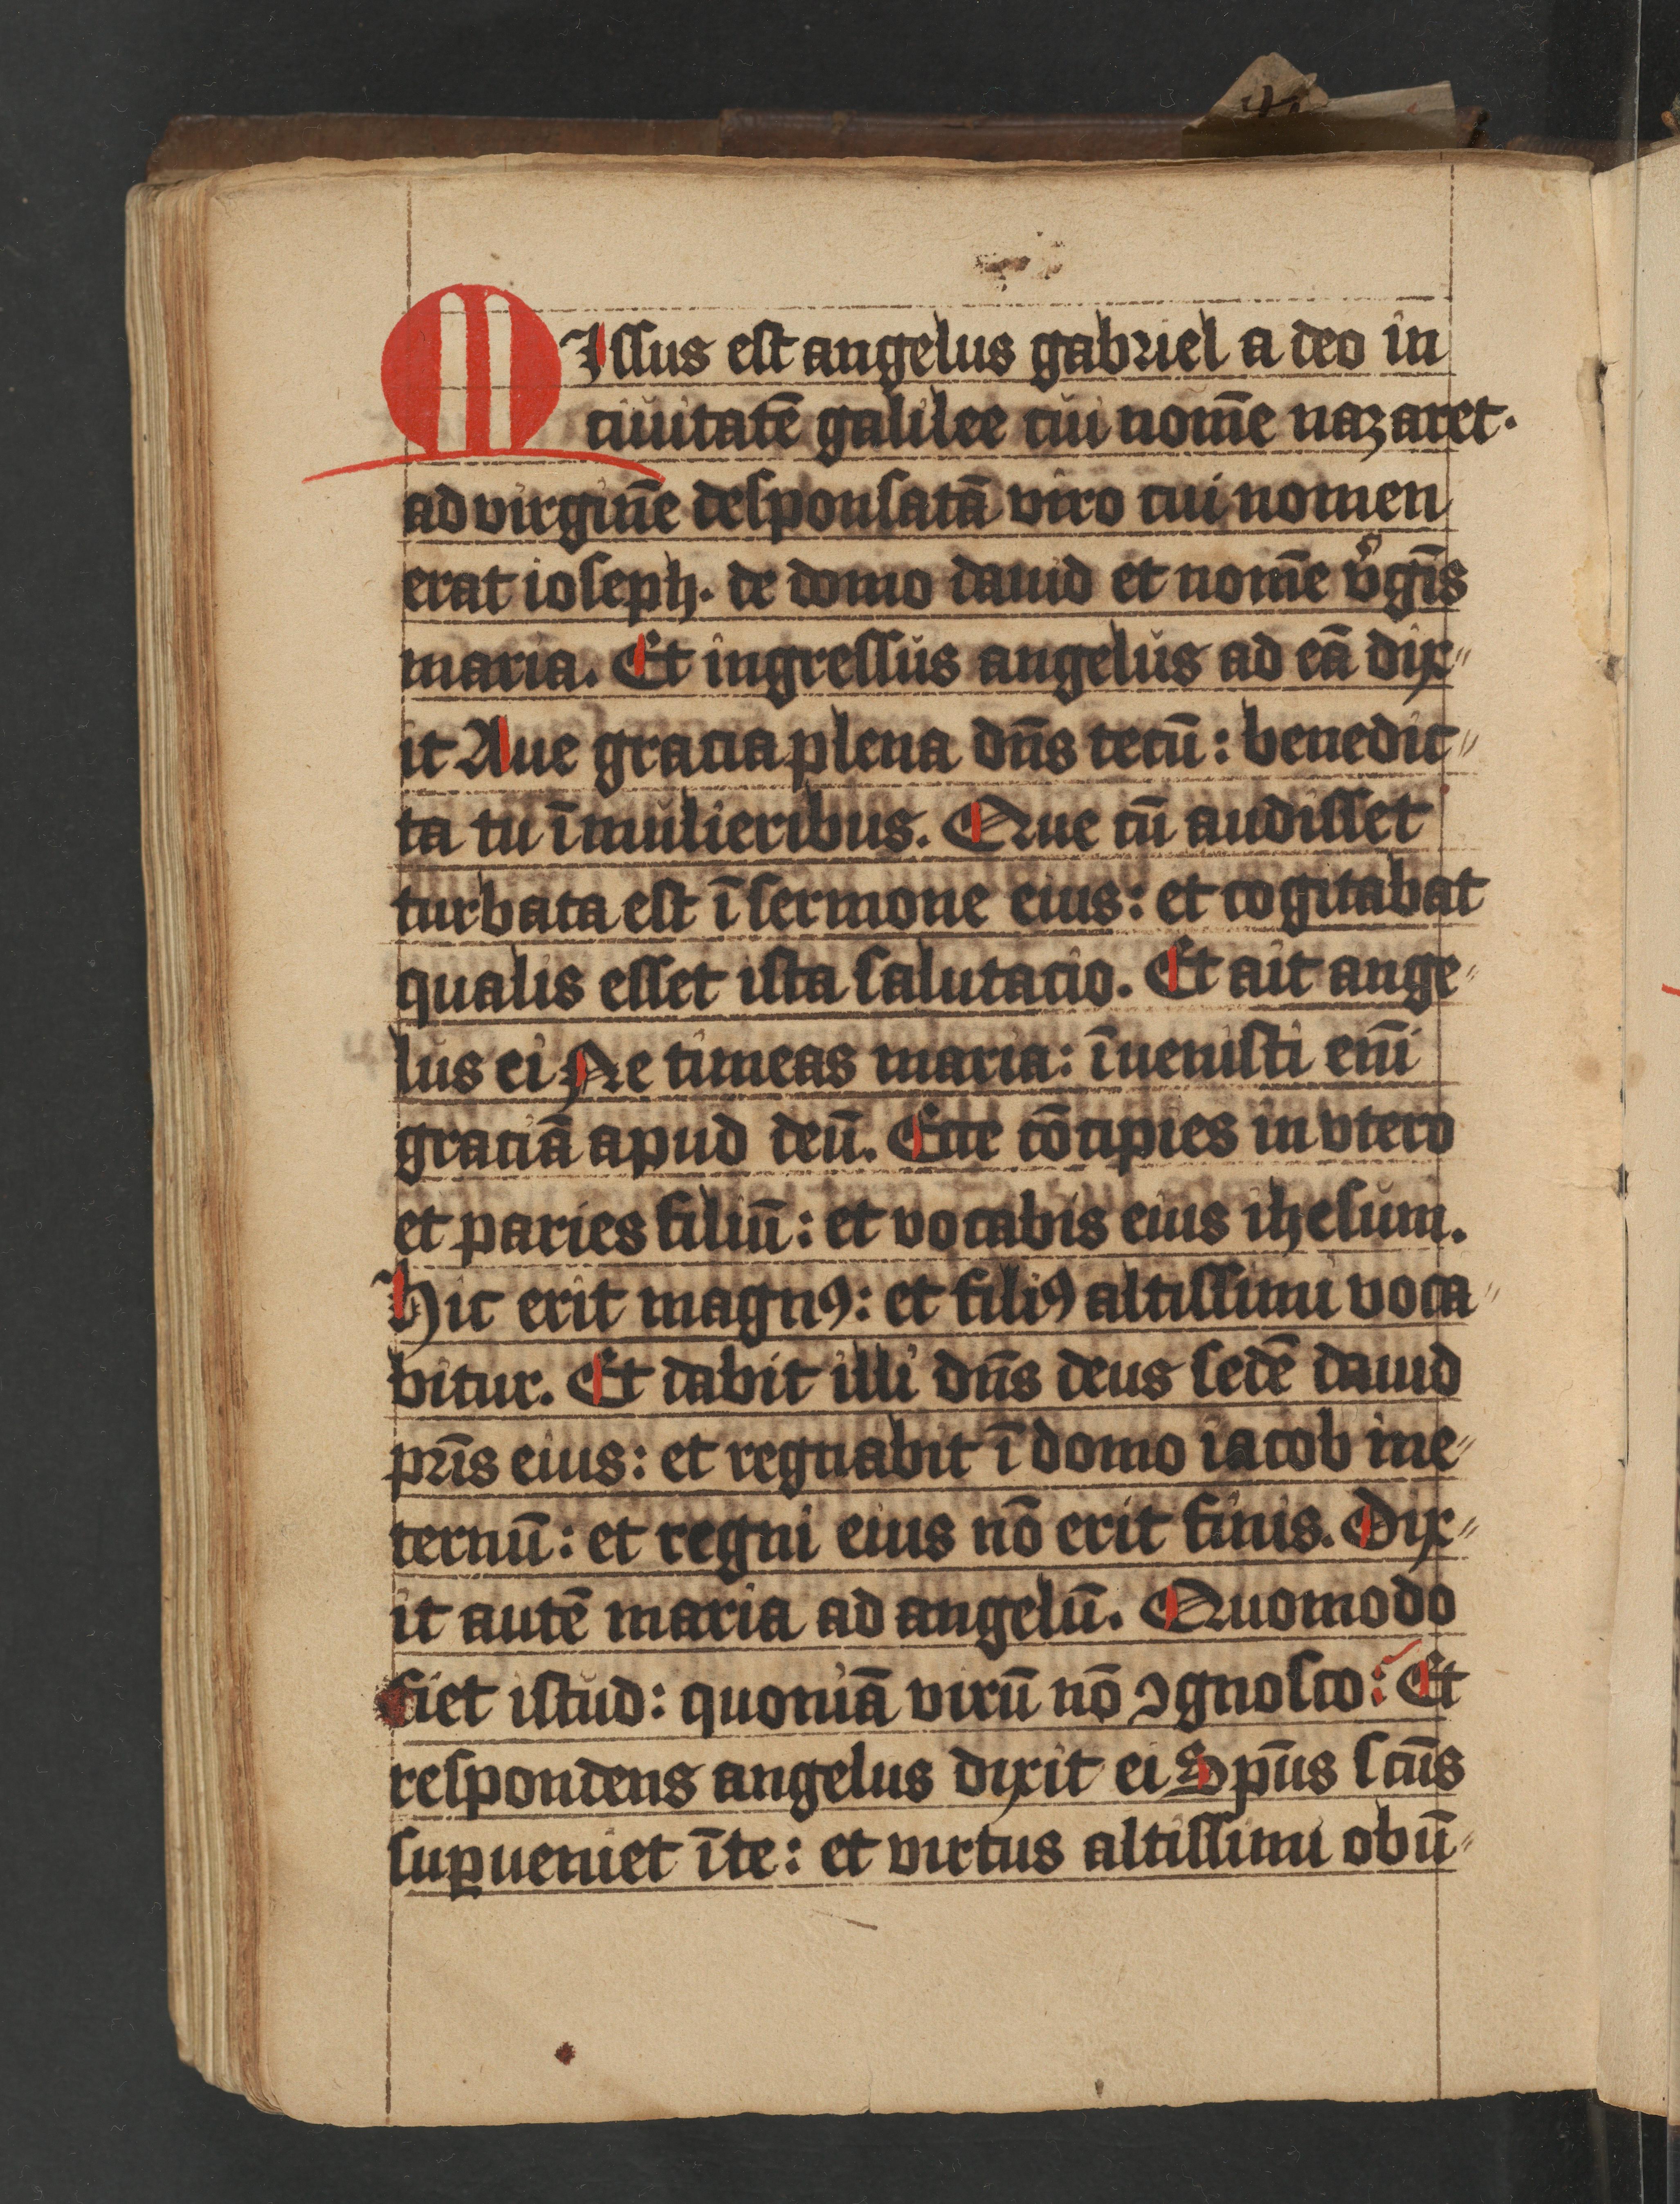 MIssus est angelus gabriel a deo in
ciuitatē galilee cui nom̄e nazaret.
ad virgin̄e desponsatā viro cui nomen
erat ioseph. de domo dauid et nom̄e v̓gīs
maria. Et ingressus angelus ad eā dix〃
it Aue gracia plena dn̄s tecū: benedic〃
ta tu ī mulieribus. Que cū audisset
turbata est ī sermone eius: et cogitabat
qualis esset ista salutacio. Et ait ange〃
lus ei Ne timeas maria: īuenisti enī
graciā apud deū. Ecce cōcipies in vtero
et paries filiū: et vocabis eius ihesum.
Hic erit magnꝰ: et filiꝰ altissimi voca〃
bitur. Et dabit illi dn̄s deus sedē dauid
pr̄is eius: et regnabit ī domo iacob in e〃
ternū: et regni eius nō erit finis. Dix〃
it autē maria ad angelū. Quomodo
fiet istud: quoniā virū nō ꝯgnosco: Et
respondens angelus dixit ei Sp̄us sc̄us
suꝑueniet ī te: et virtus altissimi obū〃